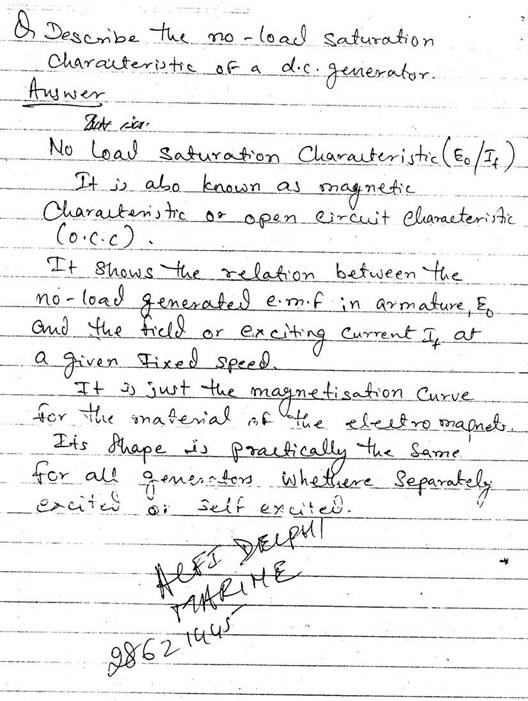 Q Describe the no-load saturation
characteristic of a d.c. generator.
Answer
No Load saturation Characteristic (E₀/If)
It is also known as magnetic
Characteristic or open circuit characteristic
(O.C.C).
It shows the relation between the
no-load generated e.m.f in armature, E₀
and the field or exciting current If at
a given fixed speed.
It is just the magnetisation curve
for the material of the electromagnets.
Its shape is practically the same
for all generators whethere separately
excited or self excited.
ALFI DELPHI
MARINE
28621445